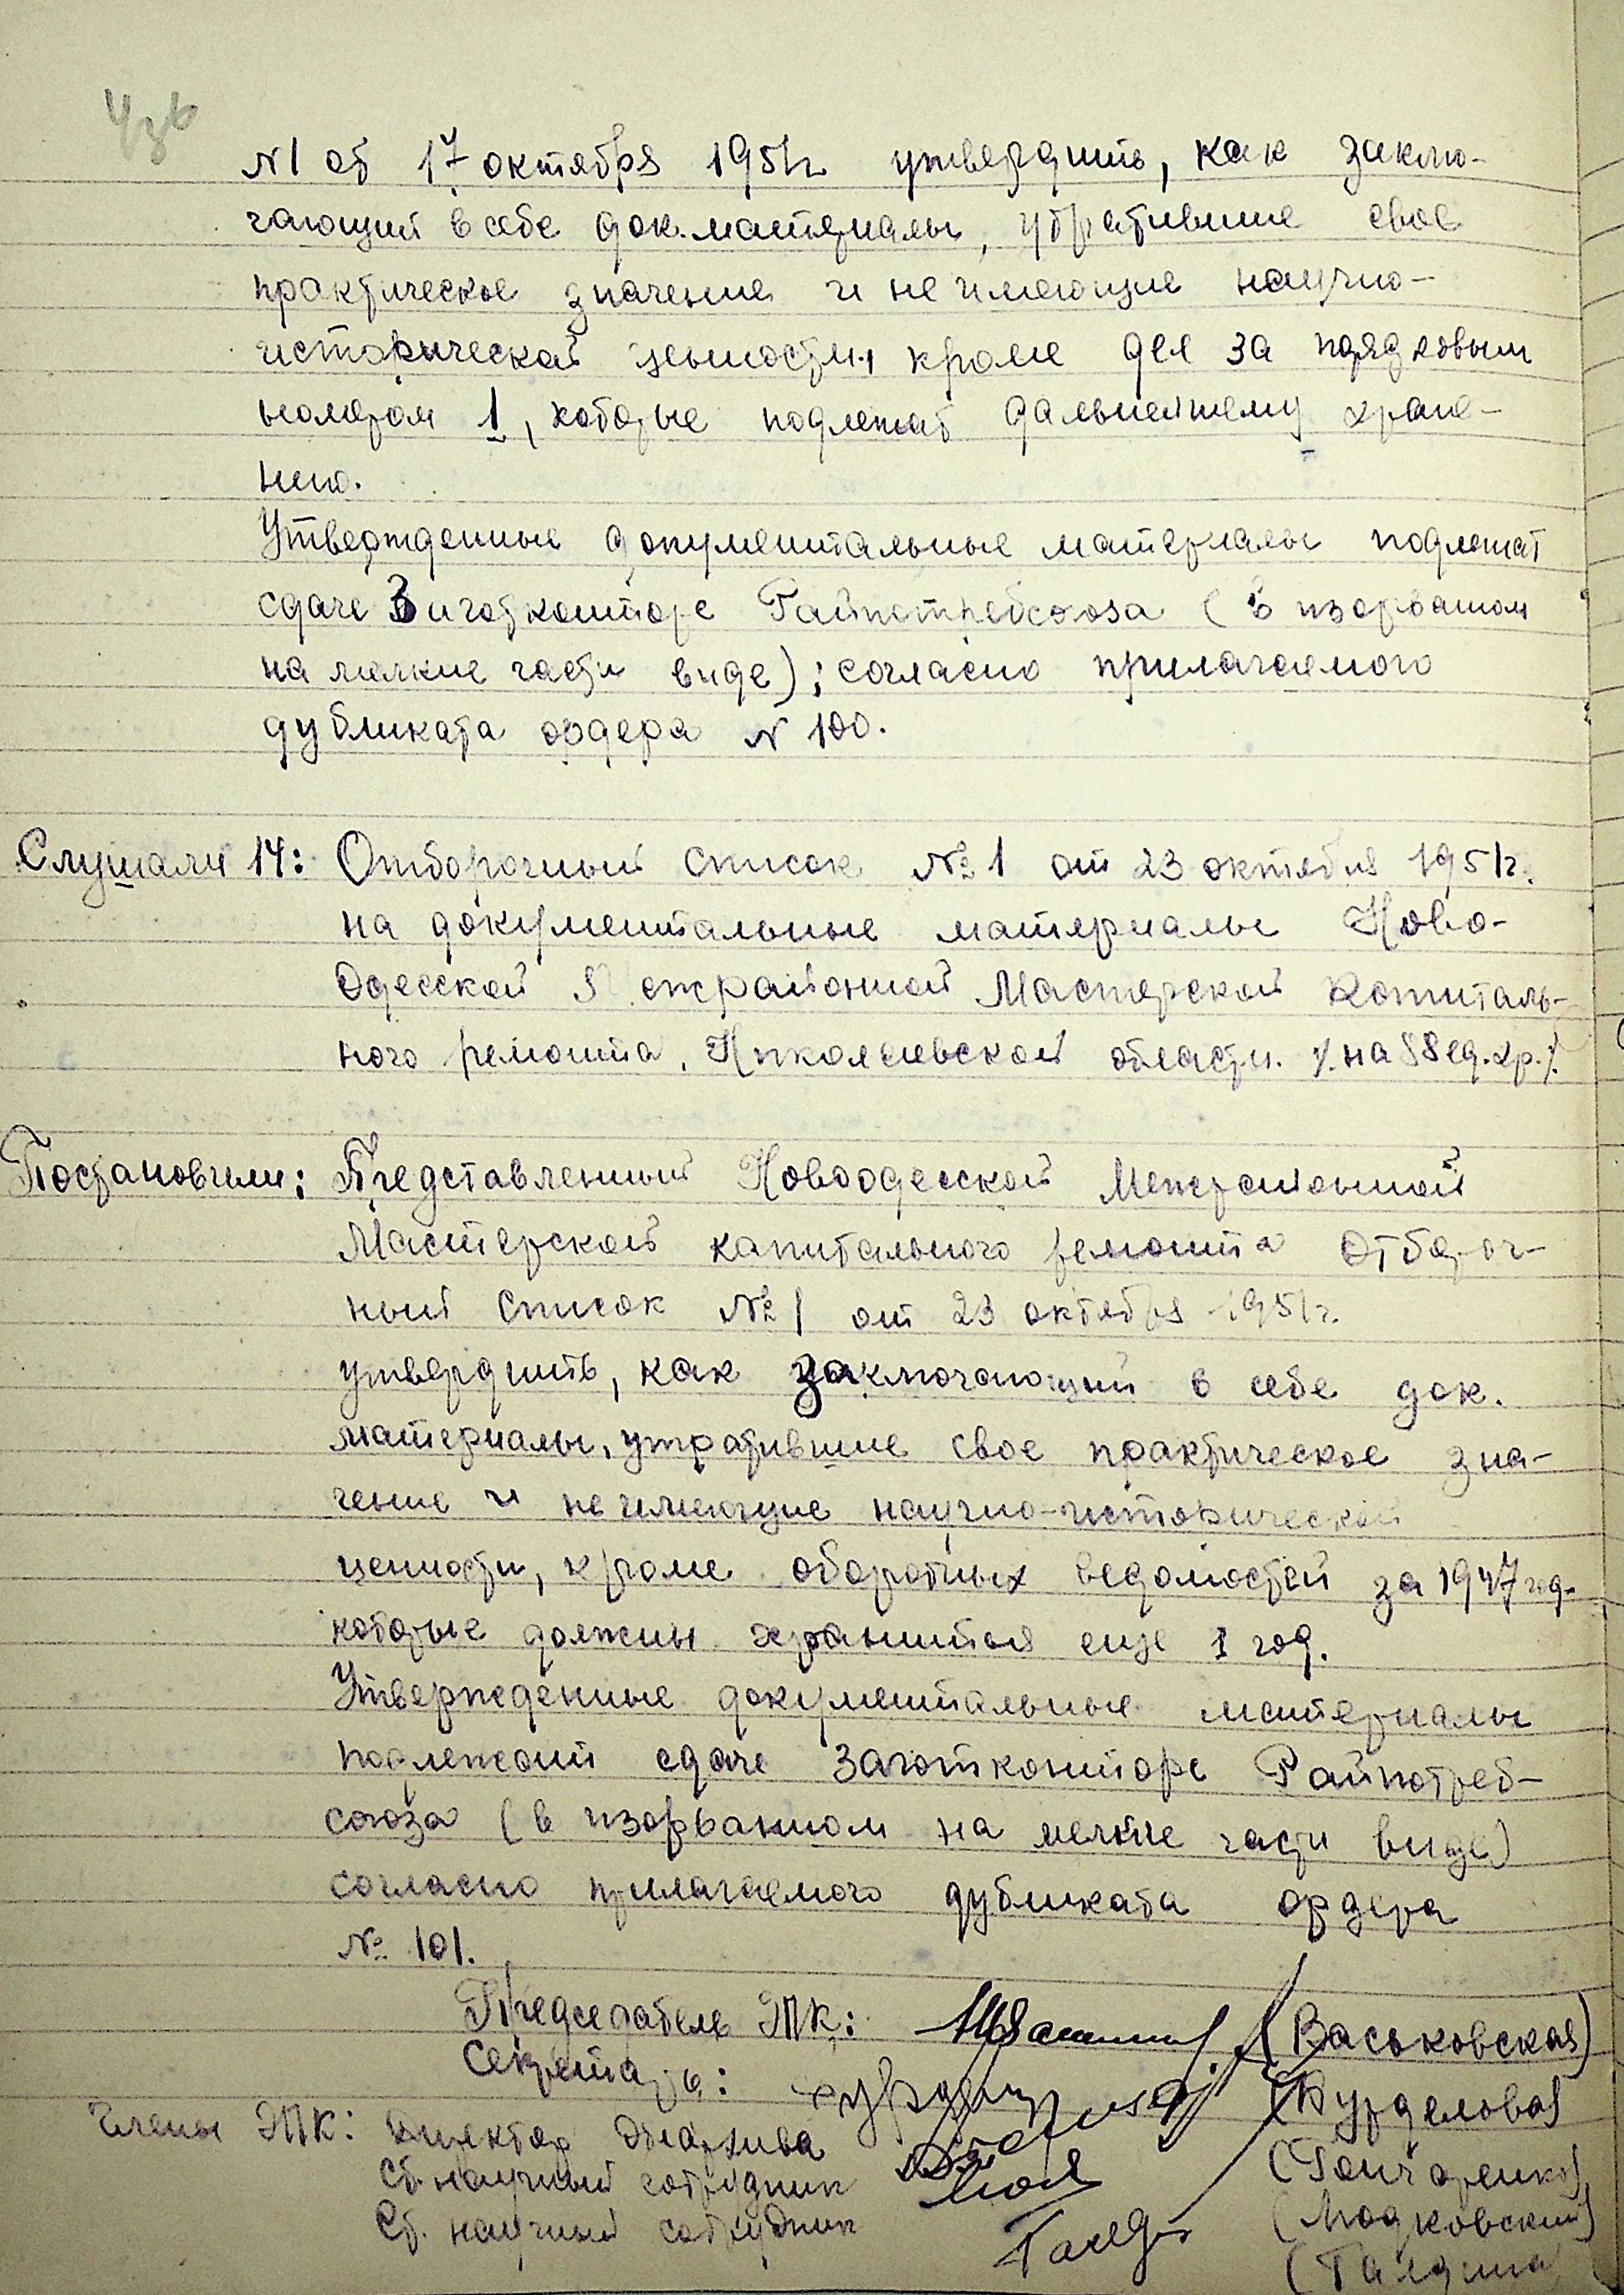 N1 от 17 октября 1951г утвердить, как заклю-
чающий в себе док. материалы, утратившие свое
практическое значение и не имеющие научно-
исторической ценности, кроме дел за порядковым
номером 1, которые подлежат дальнейшему хране-
нию.
Утвержденные документальные материалы подлежат
сдаче Заготконторе Райпотребсоюза (в изорваном
на мелкие части виде); согласно прилагаемого
дубликата ордера N 100.
Слушали 14: Отборочный список №1 от 23 октября 1951г.
на документальные материалы Ново-
Одесской Межрайонной Мастерской Капиталь-
ного ремонта, Николаевской области. /. на 88 ед. хр./.
Постановили: Представленный Новоодесской Межрайонной
Мастерской капитального ремонта Отбороч-
ный список №1 от 23 октября 1951г.
утвердить, как заключающий в себе док.
материалы, утратившие свое практическое зна-
чение и не имеющие научно-исторической
ценности, кроме оборотных ведомостей за 1947 год-
которые должны хранится еще 1 год.
Утвержденные документальные материалы
подлежат сдаче Заготконторе Райпотреб-
союза (в изорванном на мелкие части виде)
согласно прилагаемого дубликата ордера
№ 101.
Председатель ЭПК: (Васьковская)
Секретарь: (Бурделова)
Члены ЭПК: Директор Облархива (Гончаренко)
Ст. научный сотрудник (Модковский)
Ст. научный сотрудник